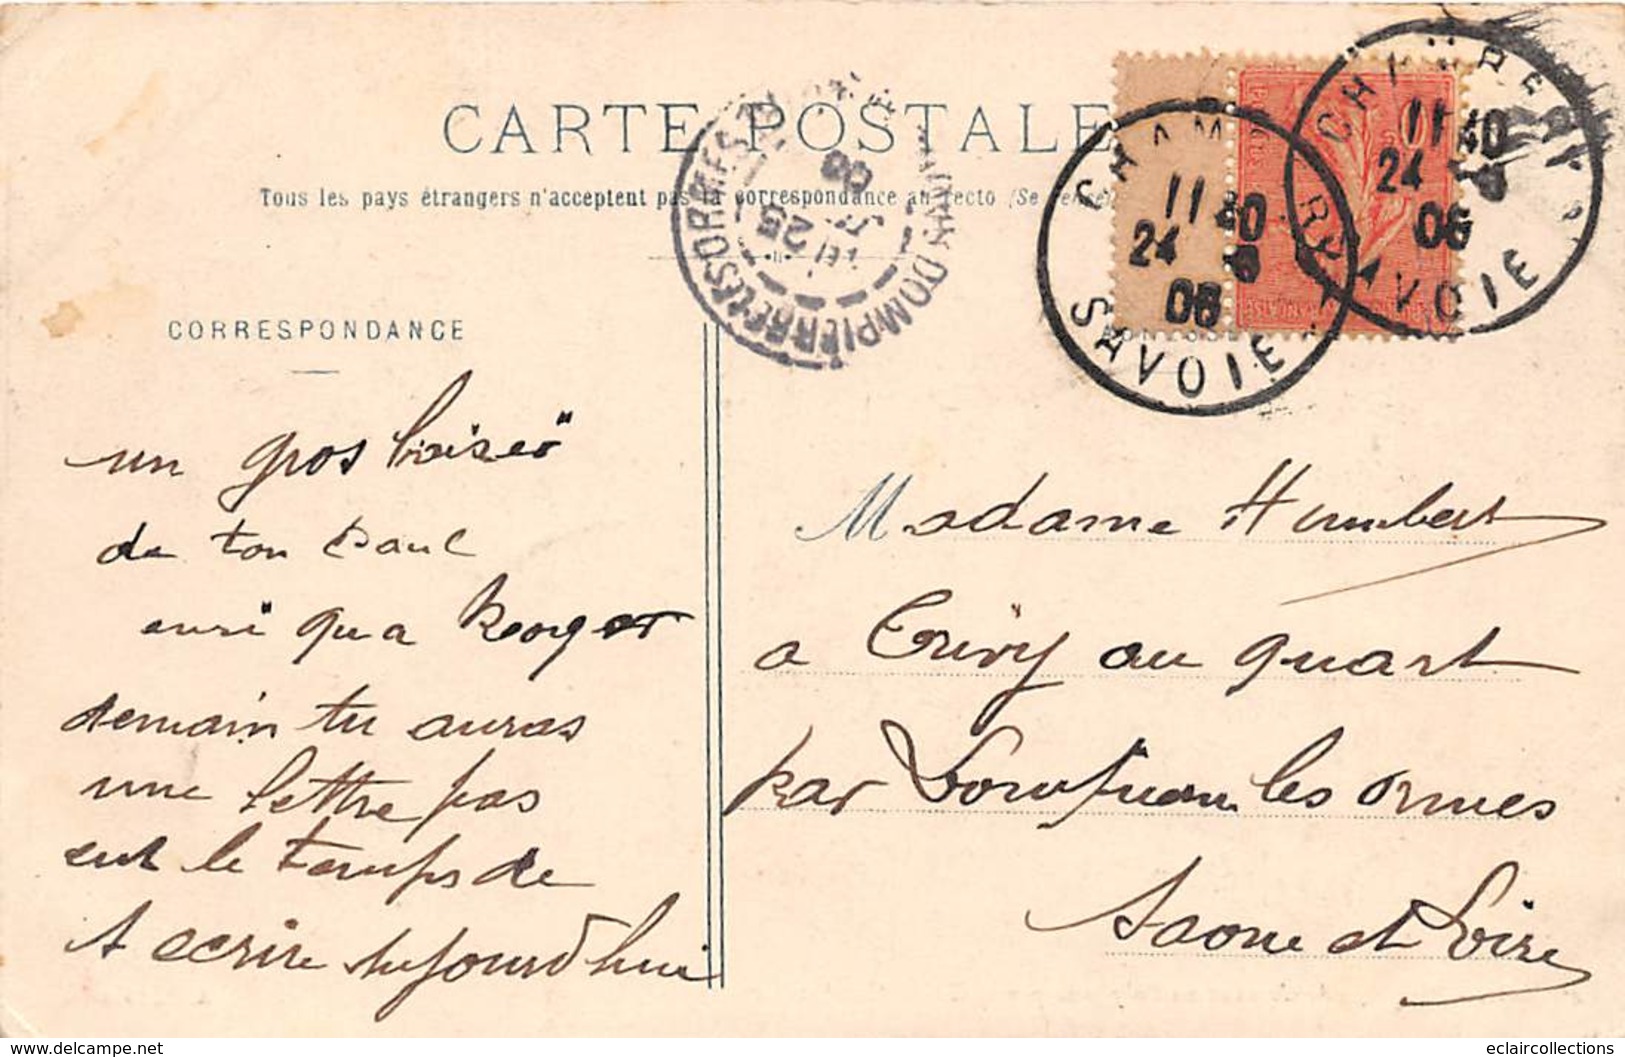 CARTE POSTALE
Tous les pays étrangers n'acceptent pas la correspondance au recto (Se
CHAMBERY
11 40
24
06
SAVOIE
CHAMBERY
11 40
24
06
SAVOIE
DOMPIERRE-LES-ORMES
25
06
CORRESPONDANCE
un gros baiser
de ton Paul
ausi qu a Roger
demain tu auras
une lettre pas
eut le temps de
t ecrire aujourd hui
Madame Humbert
a Trivy au quart
par Dompierre les ormes
Saone et Loire
https://www.delcampe.net
eclaircollections